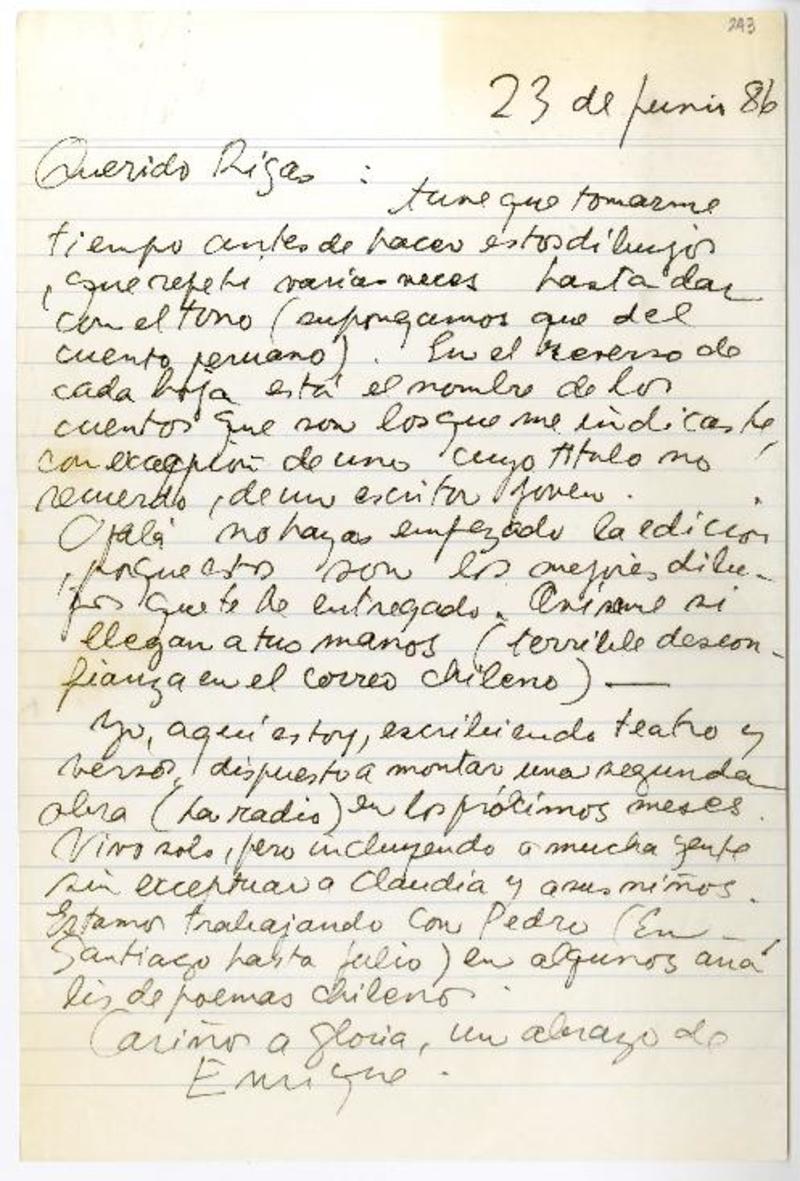 243
23 de junio 86
Querido Rigas :
tuve que tomarme
tiempo antes de hacer estos dibujos
, que repetí varias veces hasta dar
con el tono (supongamos que del
cuento peruano). En el reverso de
cada hoja está el nombre de los
cuentos que son los que me indicaste,
con excepción de uno cuyo título no
recuerdo, de un escritor joven.
Ojalá no hayas empezado la edición
, porque estos son los mejores dibu-
jos que te he entregado. Avísame si
llegan a tus manos (terrible descon-
fianza en el correo chileno) —
Yo, aquí estoy, escribiendo teatro y
versos, dispuesto a montar una segunda
obra (La radio) en los próximos meses.
Vivo solo, pero incluyendo a mucha gente
sin exceptuar a Claudia y a sus niños.
Estamos trabajando con Pedro (En
Santiago hasta julio) en algunos aná-
lis de poemas chilenos.
Cariños a Gloria, un abrazo de
Enrique.